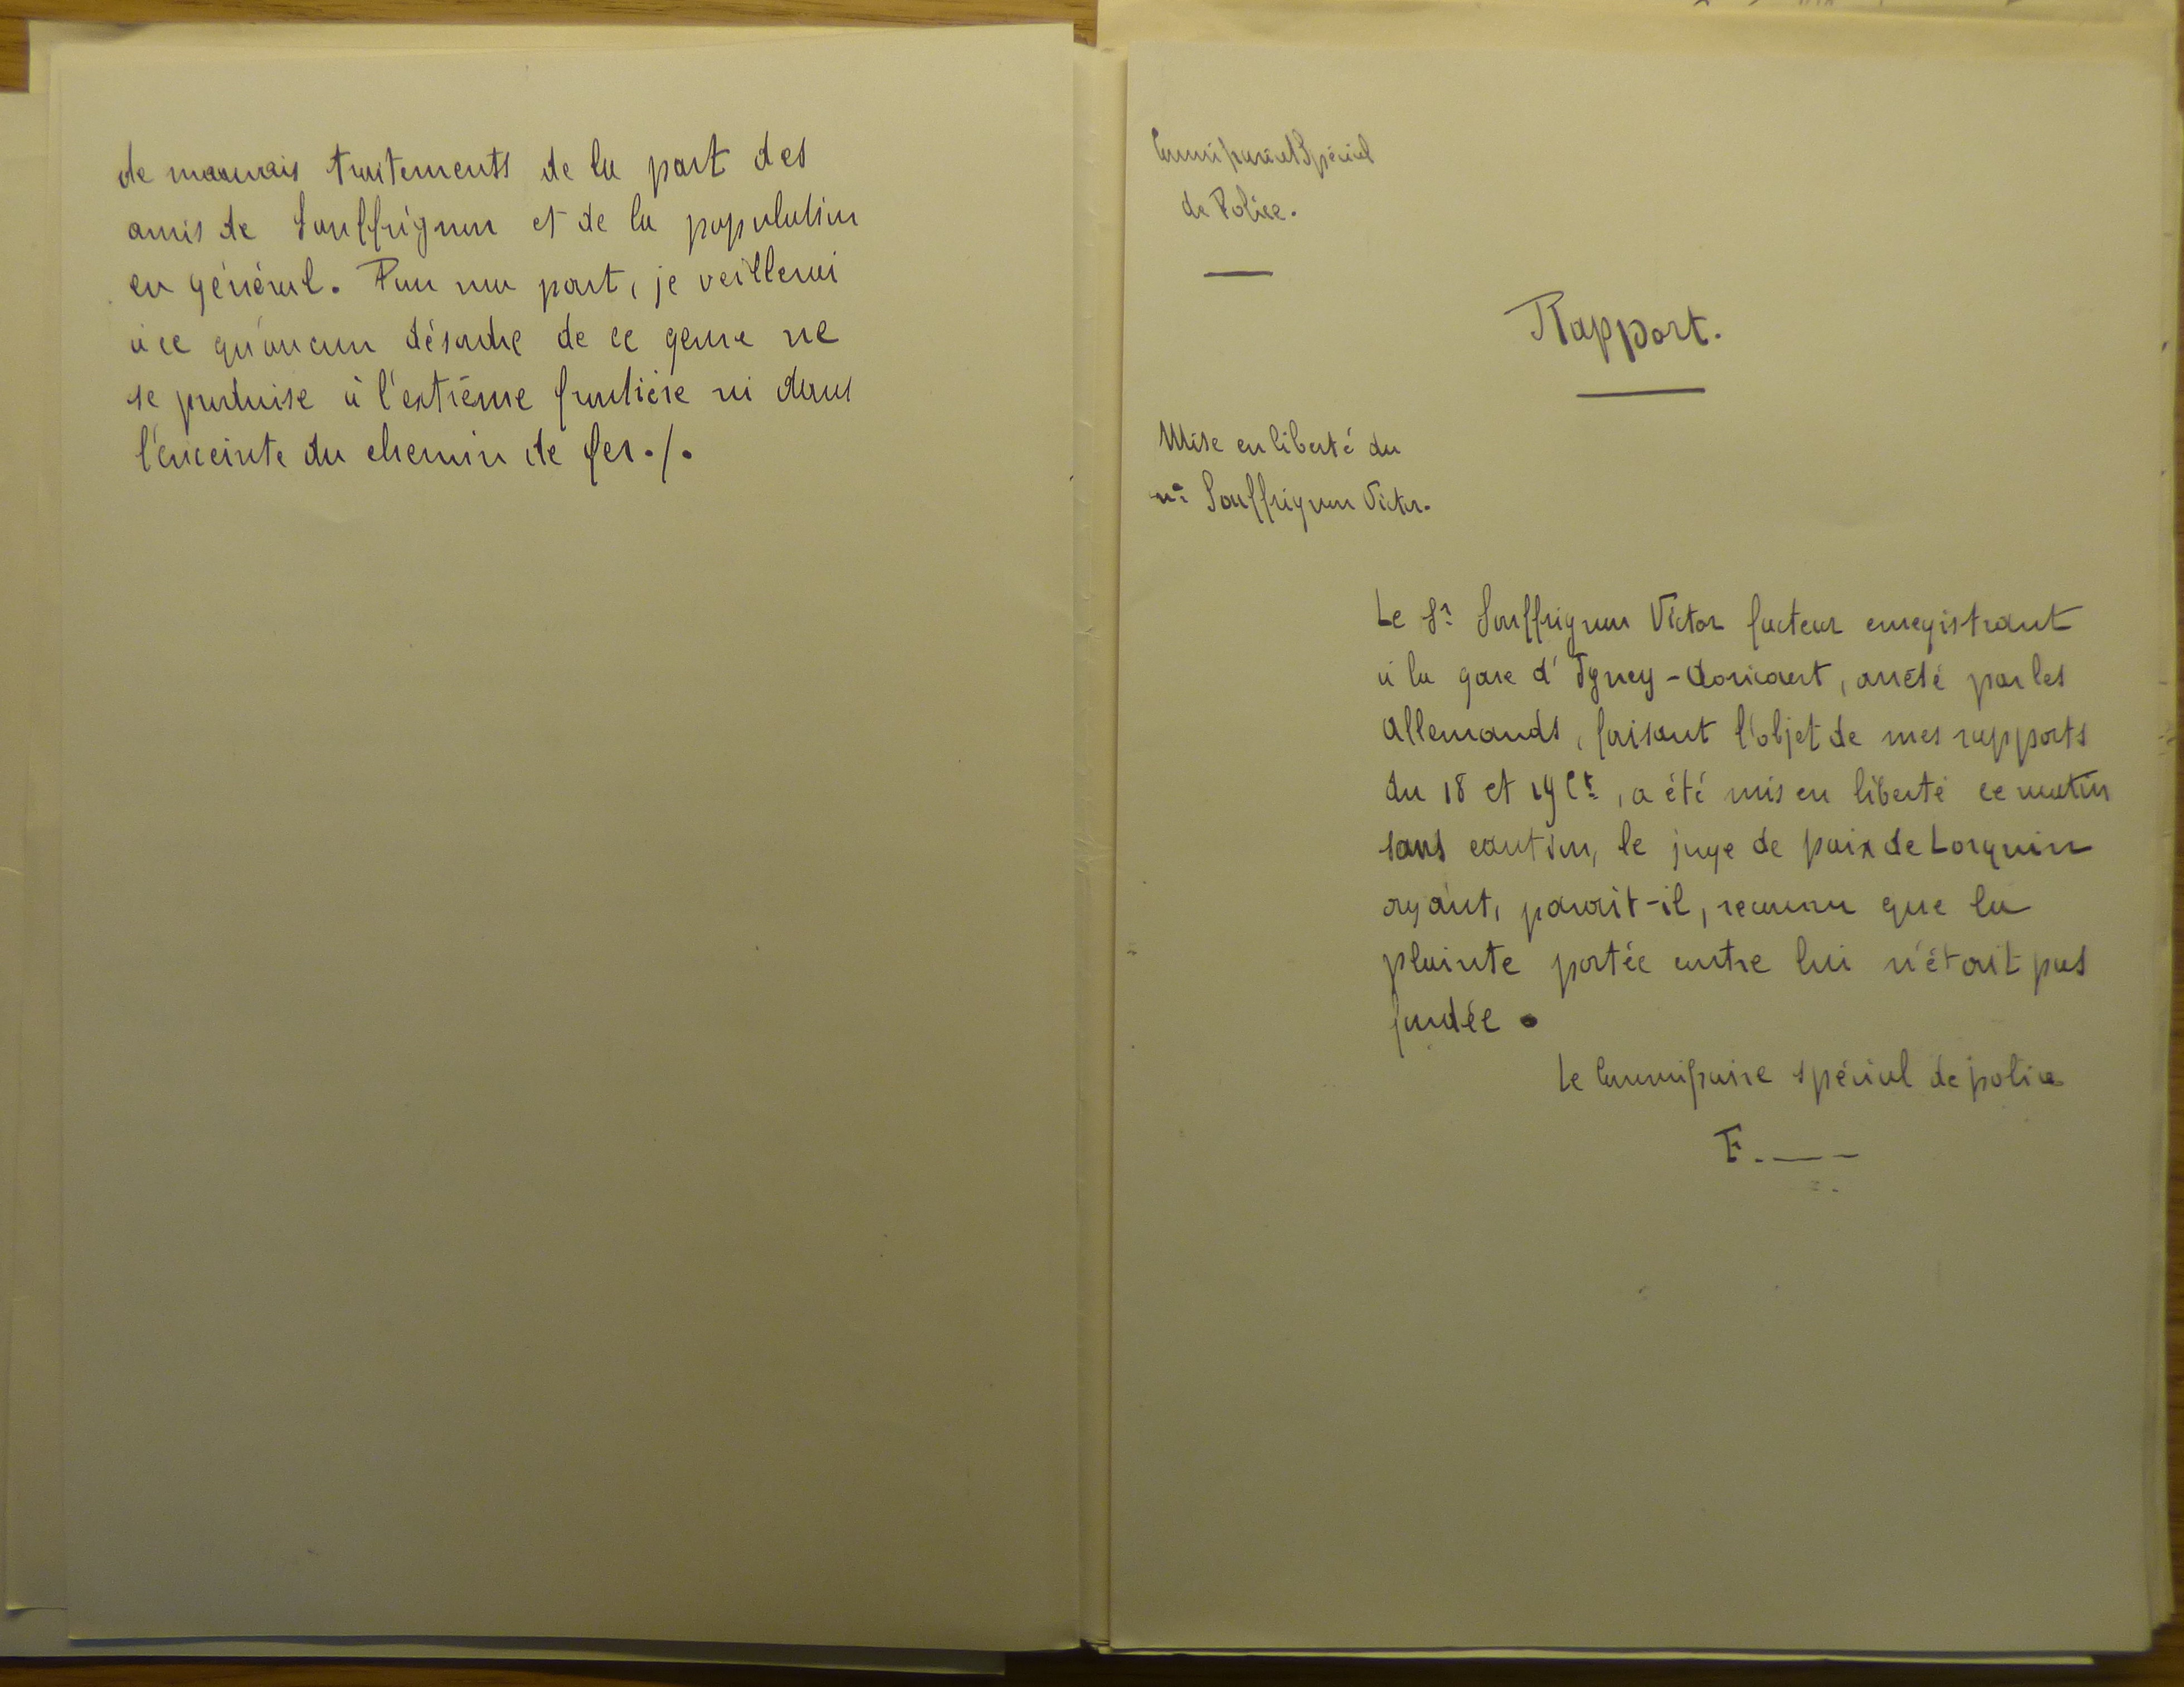 de mauvais traitements de la part des
amis de Souffrignon et de la population
en général. Pour ma part, je veillerai
à ce qu'aucun désordre de ce genre ne
se produise à l'extrême frontière ni dans
l'enceinte du chemin de fer./.
Commissariat Spécial
de Police.
Rapport.
Mise en liberté du
Souffrignon Victor.
Le Sr Souffrignon Victor facteur enregistrant
à la gare d'Igney-Avricourt, arrêté par les
Allemands, faisant l'objet de mes rapports
du 18 et 19 Ct, a été mis en liberté ce matin
sans caution, le juge de paix de Lorquin
ayant, parait-il, reconnu que la
plainte portée contre lui n'était pas
fondée.
Le Commissaire spécial de police
F.